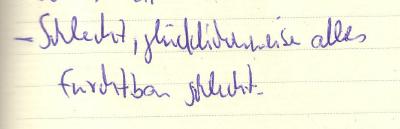 - Schlecht, glücklicherweise alles
furchtbar schlecht.